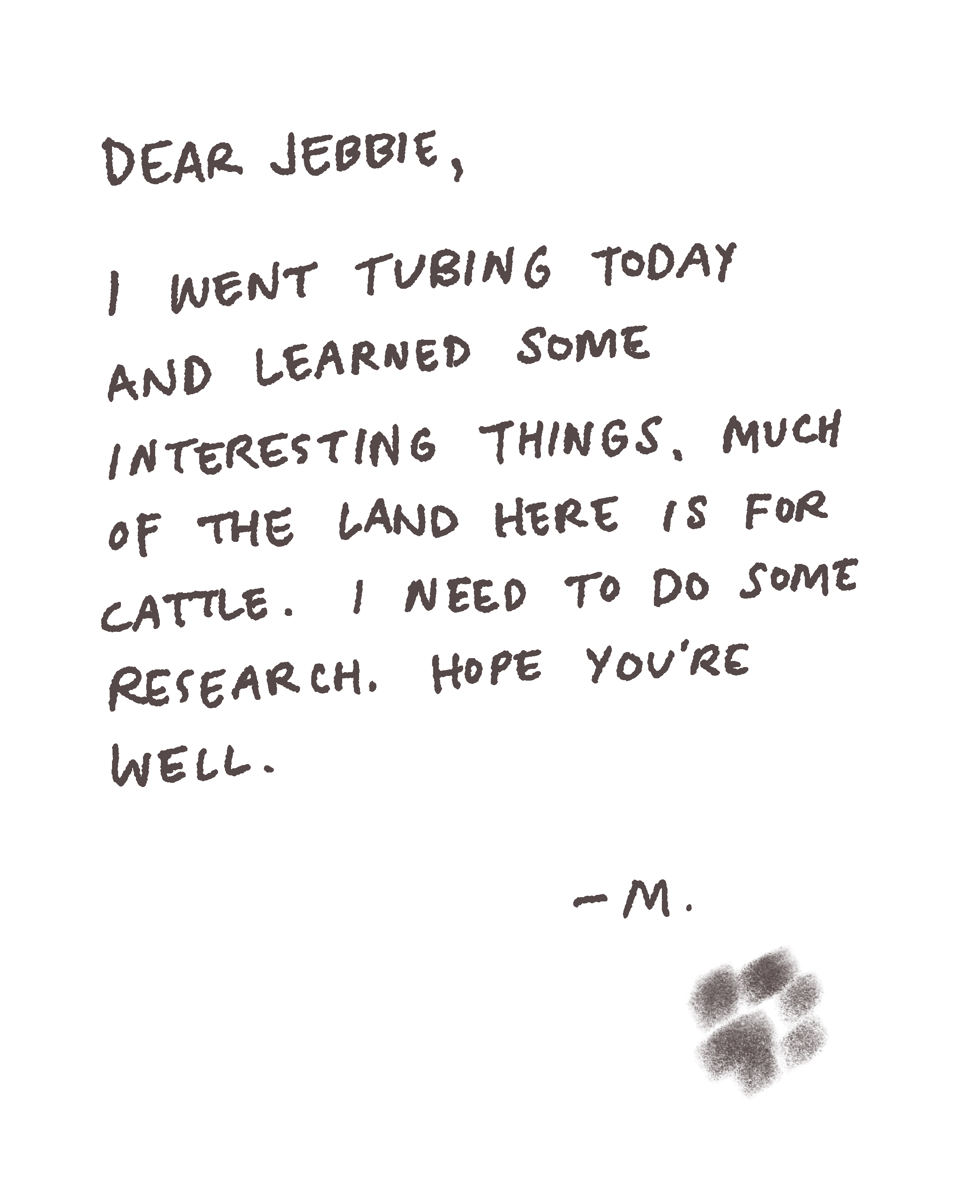 DEAR JEBBIE,
I WENT TUBING TODAY
AND LEARNED SOME
INTERESTING THINGS. MUCH
OF THE LAND HERE IS FOR
CATTLE. I NEED TO DO SOME
RESEARCH. HOPE YOU'RE
WELL.
– M.